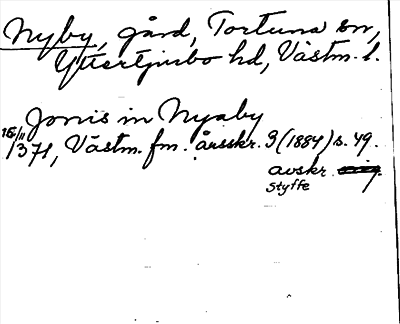 Nyby, gård, Tortuna sn,
Yttertjurbo hd, Västm. l.
Jonis in Nyaby
15/11 1371, Västm. fm. årsskr. 3 (1884) s. 49.
avskr.
Styffe